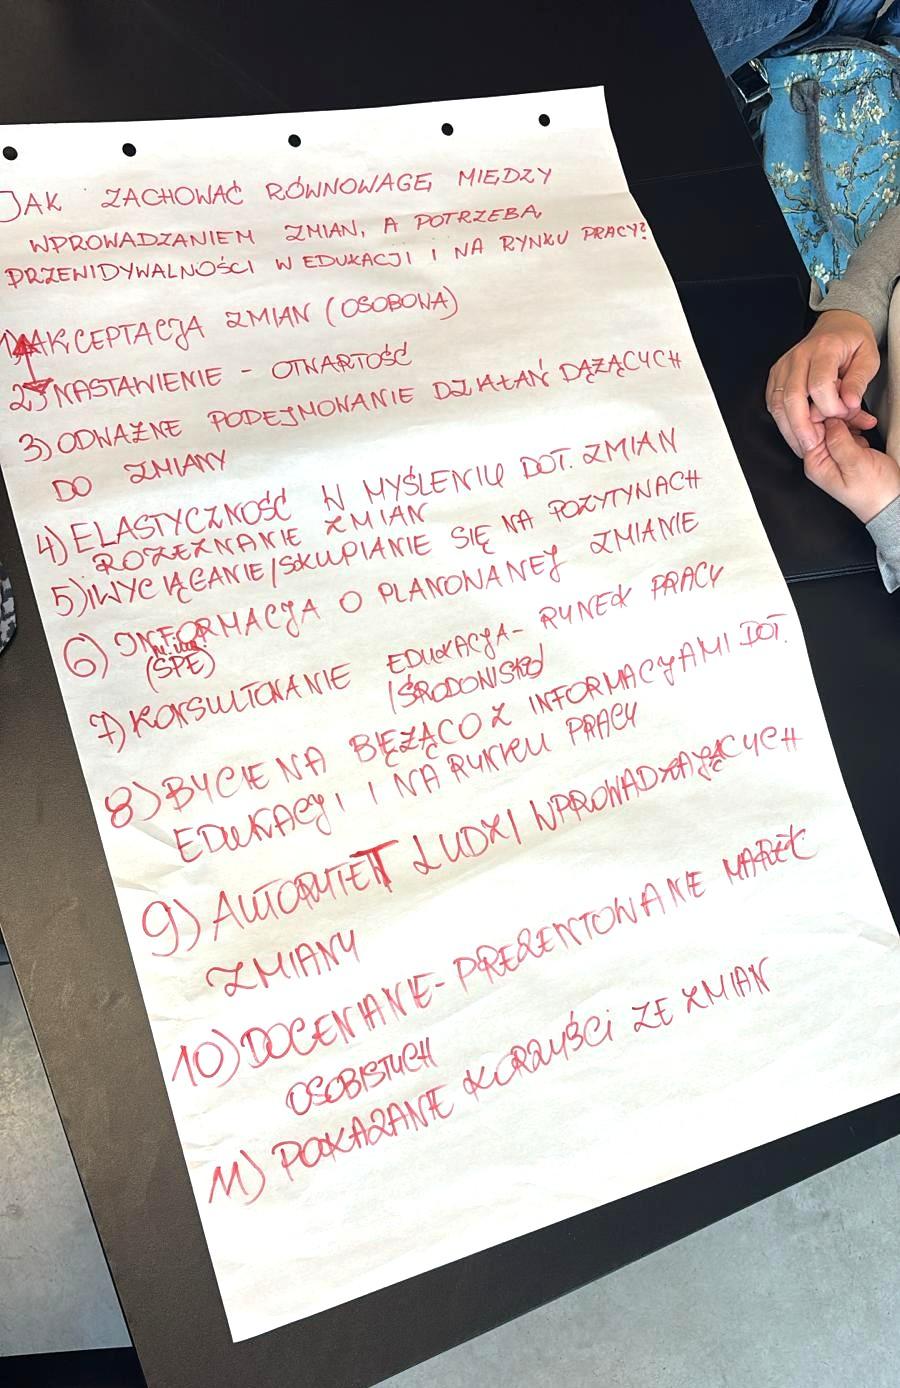 JAK ZACHOWAĆ RÓWNOWAGĘ MIĘDZY
WPROWADZANIEM ZMIAN, A POTRZEBĄ
PRZEWIDYWALNOŚCI W EDUKACJI I NA RYNKU PRACY?
1) AKCEPTACJA ZMIAN (OSOBOWA)
2) NASTAWIENIE - OTWARTOŚĆ
3) ODWAŻNE PODEJMOWANIE DZIAŁAŃ DĄŻĄCYCH
DO ZMIANY
4) ELASTYCZNOŚĆ W MYŚLENIU DOT. ZMIAN
ROZEZNANIE ZMIAN
5) WYCIĄGANIE/SKUPIANIE SIĘ NA POZYTYWACH
6) INFORMACJA O PLANOWANEJ ZMIANIE
(SPE)
7) KONSULTOWANIE EDUKACJA - RYNEK PRACY
/ŚRODOWISKO
8) BYCIE NA BIĘŻĄCO Z INFORMACJAMI DOT.
EDUKACJI I NA RYNKU PRACY
9) AUTORYTET LUDZI WPROWADZAJĄCYCH
ZMIANY
10) DOCENIANIE - PREZENTOWANIE MAREK
OSOBISTYCH
11) POKAZANIE KORZYŚCI ZE ZMIAN